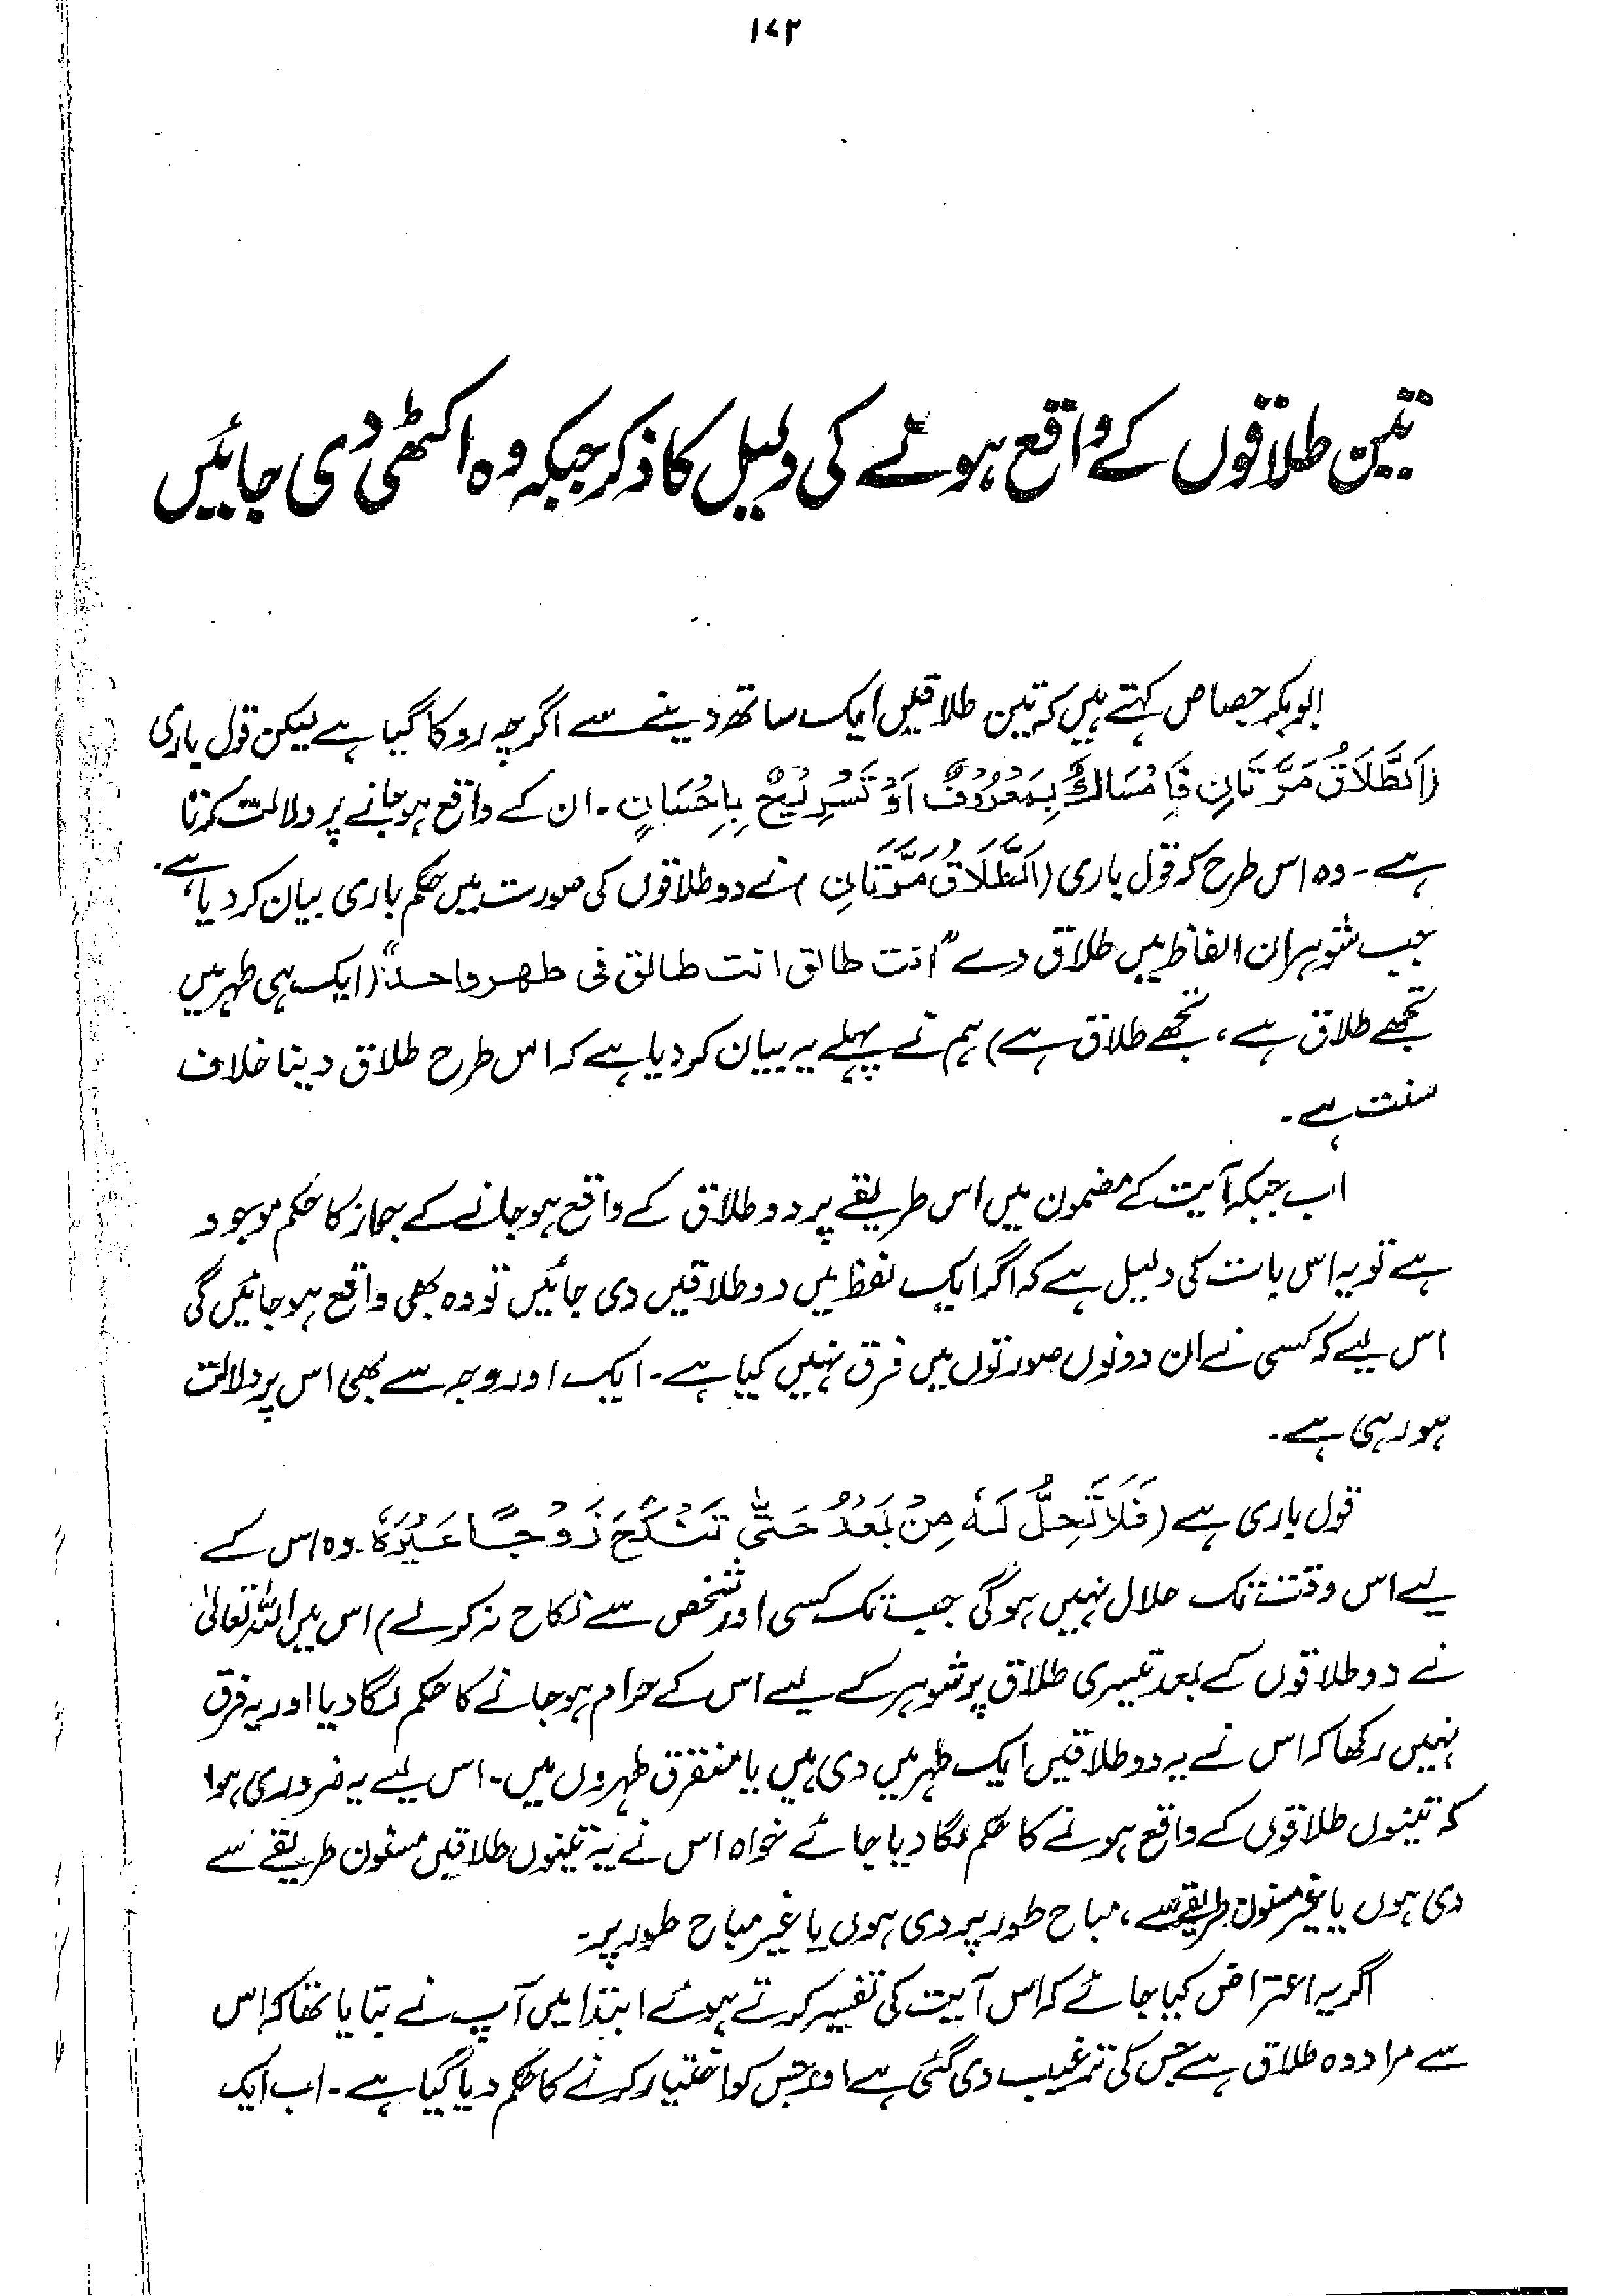 ۱۷۳
تین طلاقوں کے واقع ہونے کی دلیل کا ذکر جبکہ وہ اکٹھی دی جائیں
ابوبکر جصاص کہتے ہیں کہ تین طلاقیں ایک ساتھ دینے سے اگرچہ روکا گیا ہے لیکن قول باری
(اَلطَّلَاقُ مَرَّتَانِ فَاِمْسَاكٌ بِمَعْرُوْفٍ اَوْ تَسْرِيْحٌ بِاِحْسَانٍ ۔ ان کے واقع ہو جانے پر دلالت کرتا
ہے ۔ وہ اس طرح کہ قول باری (اَلطَّلَاقُ مَرَّتَانِ) نے دو طلاقوں کی صورت میں حکم باری بیان کر دیا ہے ۔
جب شوہر ان الفاظ میں طلاق دے "انت طالق انت طالق فی طهر واحد" (ایک ہی طہر میں
تجھے طلاق ہے ، تجھے طلاق ہے) ہم نے پہلے یہ بیان کر دیا ہے کہ اس طرح طلاق دینا خلاف
سنت ہے ۔
اب جبکہ آیت کے مضمون میں اس طریقے پر دو طلاق کے واقع ہو جانے کے جواز کا حکم موجود
ہے تو یہ اس بات کی دلیل ہے کہ اگر ایک لفظ میں دو طلاقیں دی جائیں تو وہ بھی واقع ہو جائیں گی
اس لیے کہ کسی نے ان دونوں صورتوں میں فرق نہیں کیا ہے ۔ ایک اور وجہ سے بھی اس پر دلالت
ہو رہی ہے ۔
قول باری ہے (فَلَا تَحِلُّ لَهٗ مِنْ بَعْدُ حَتّٰى تَنْكِحَ زَوْجًا غَيْرَهٗ وہ اس کے
لیے اس وقت تک حلال نہیں ہو گی جب تک کسی اور شخص سے نکاح نہ کر لے) اس میں اللہ تعالیٰ
نے دو طلاقوں کے بعد تیسری طلاق پر شوہر کے لیے اس کے حرام ہو جانے کا حکم لگا دیا اور یہ فرق
نہیں رکھا کہ اس نے یہ دو طلاقیں ایک طہر میں دی ہیں یا متفرق طہروں میں ۔ اس لیے یہ ضروری ہوا
کہ تینوں طلاقوں کے واقع ہونے کا حکم لگا دیا جائے خواہ اس نے یہ تینوں طلاقیں مسنون طریقے سے
دی ہوں یا غیر مسنون طریقے سے ، مباح طور پر دی ہوں یا غیر مباح طور پر ۔
اگر یہ اعتراض کیا جائے کہ اس آیت کی تفسیر کرتے ہوئے ابتدا میں آپ نے بتایا تھا کہ اس
سے مراد وہ طلاق ہے جس کی ترغیب دی گئی ہے اور جس کو اختیار کرنے کا حکم دیا گیا ہے ۔ اب ایک